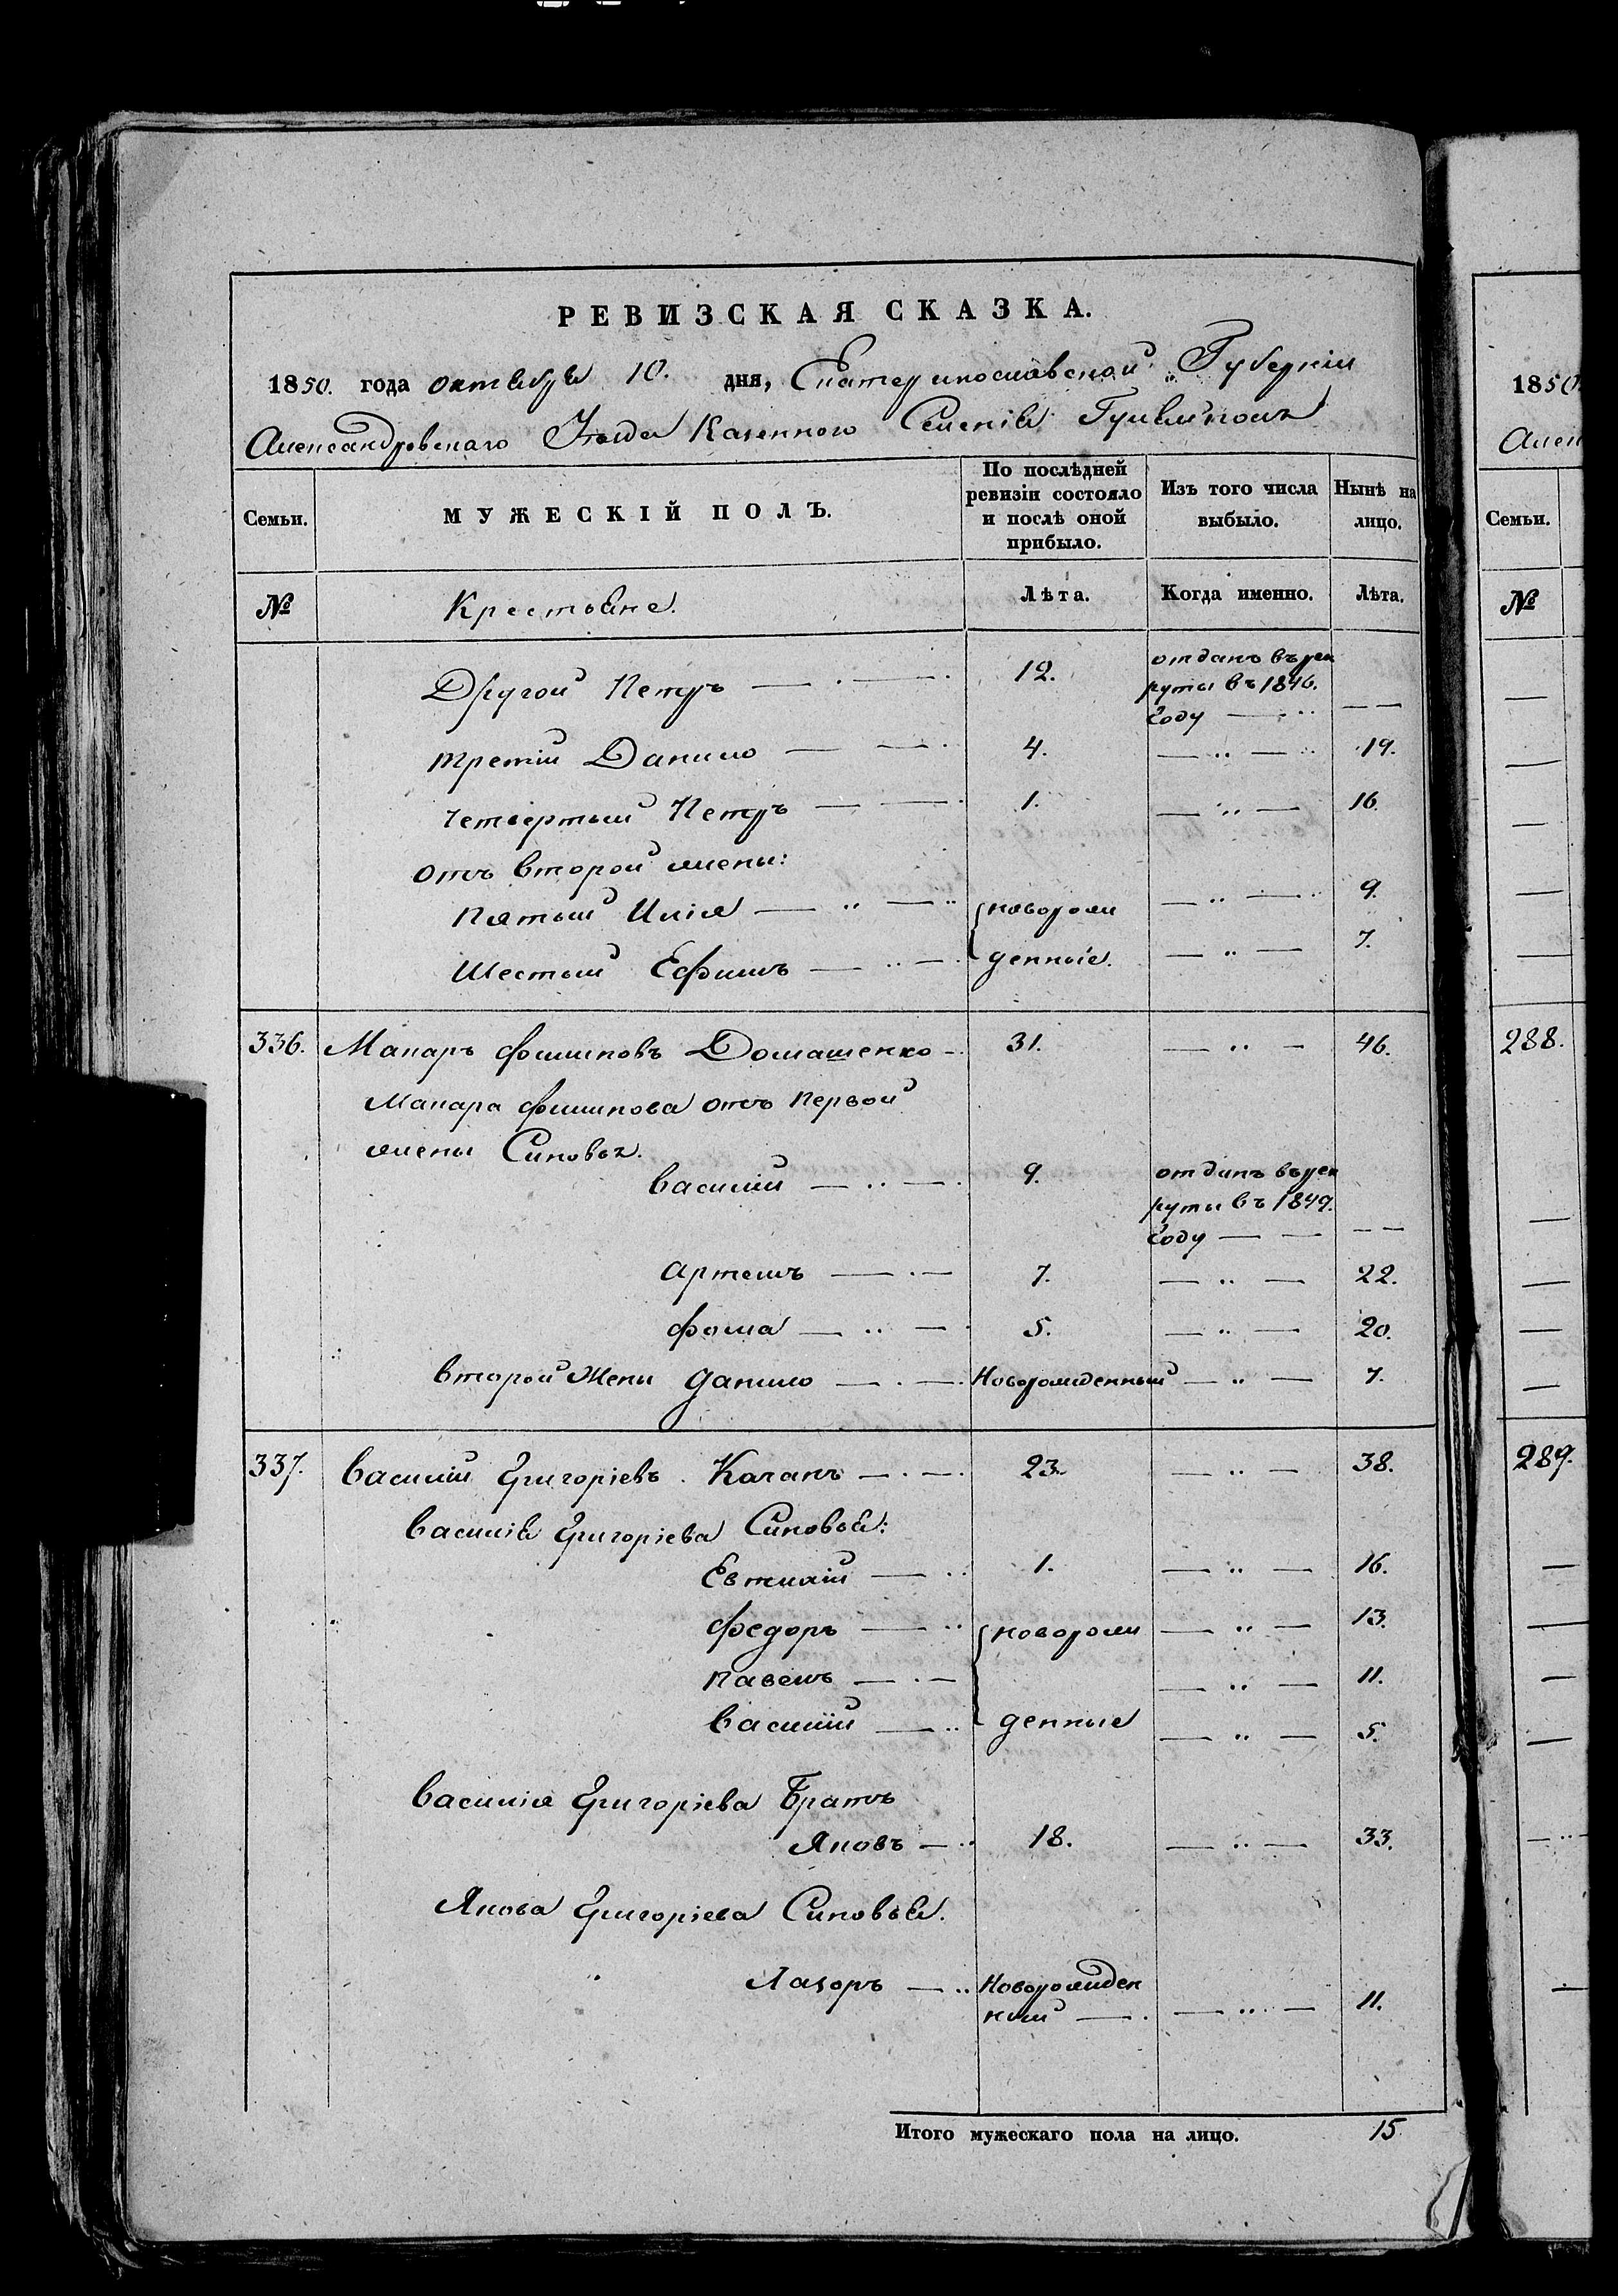 РЕВИЗСКАЯ СКАЗКА.
1850. года октября 10. дня, Екатеринославской Губерніи
Александровскаго Уѣзда Казенного Селенія Гуляйполя
Семьи.
МУЖЕСКІЙ ПОЛЪ.
По послѣдней ревизіи состояло и послѣ оной прибыло.
Изъ того числа выбыло.
Нынѣ на лицо.
№
Крестьяне.
Лѣта.
Когда именно.
Лѣта.
Другой Петръ — · — 12. отданъ въ рек
руты въ 1846.
году — ·· — —
третій Данило — — · 4. — ·· — ·· 19.
четвертый Петръ — — · 1. — ·· — 16.
отъ второй жены:
пятый Илія — ·· — ·· новорож — ·· — ·· 9.
шестый Ефимъ — ·· — · денные. — ·· — 7.
336. Макаръ Филиповъ Домашенко — 31. — ·· — 46.
Макара Филипова отъ первой
жены Сыновья.
Василій — ·· — · 9. отданъ въ рек
руты въ 1849.
году — — — —
Артемъ — · — 7. — ·· — 22.
Фома — ·· — 5. — ·· — 20.
второй Жены Данило — · — Новорожденный — ·· — 7.
337. Василій Григоріевъ Качанъ — · — · 23. — ·· — 38.
Василія Григоріева Сыновья:
Евтихій — ·· 1. — ·· — 16.
Федоръ — ·· новорож — ·· — 13.
Павелъ — · — — ·· — 11.
Василій — ·· денные — ·· — 5.
Василія Григоріева Братъ
Яковъ — ·· 18. — ·· — 33.
Якова Григоріева Сыновья.
Лазоръ — ·· Новорожден
ный — · — ·· — 11.
Итого мужескаго пола на лицо. 15
1850
Алек
Семьи.
№
288.
289.